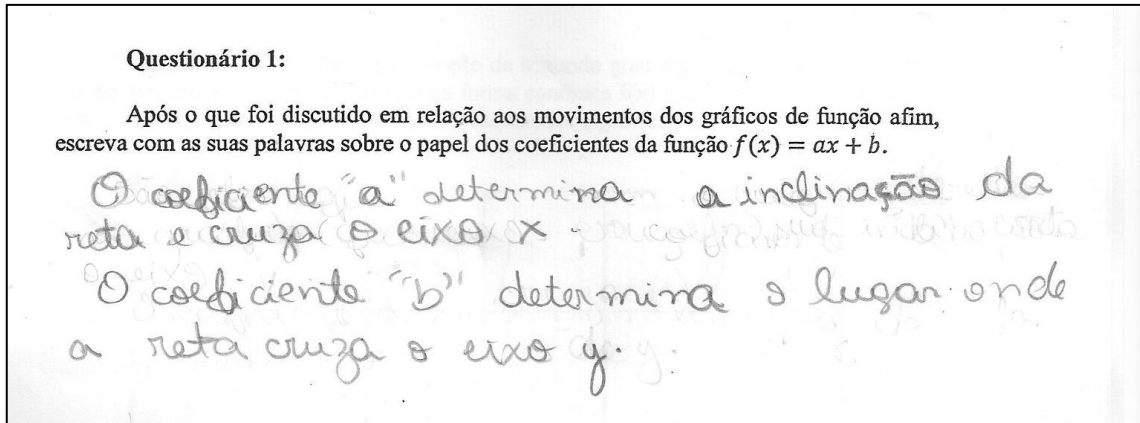 Questionário 1:
Após o que foi discutido em relação aos movimentos dos gráficos de função afim,
escreva com as suas palavras sobre o papel dos coeficientes da função f(x) = ax + b.
O coeficiente "a" determina a inclinação da
reta e cruza o eixo x.
O coeficiente "b" determina o lugar onde
a reta cruza o eixo y.